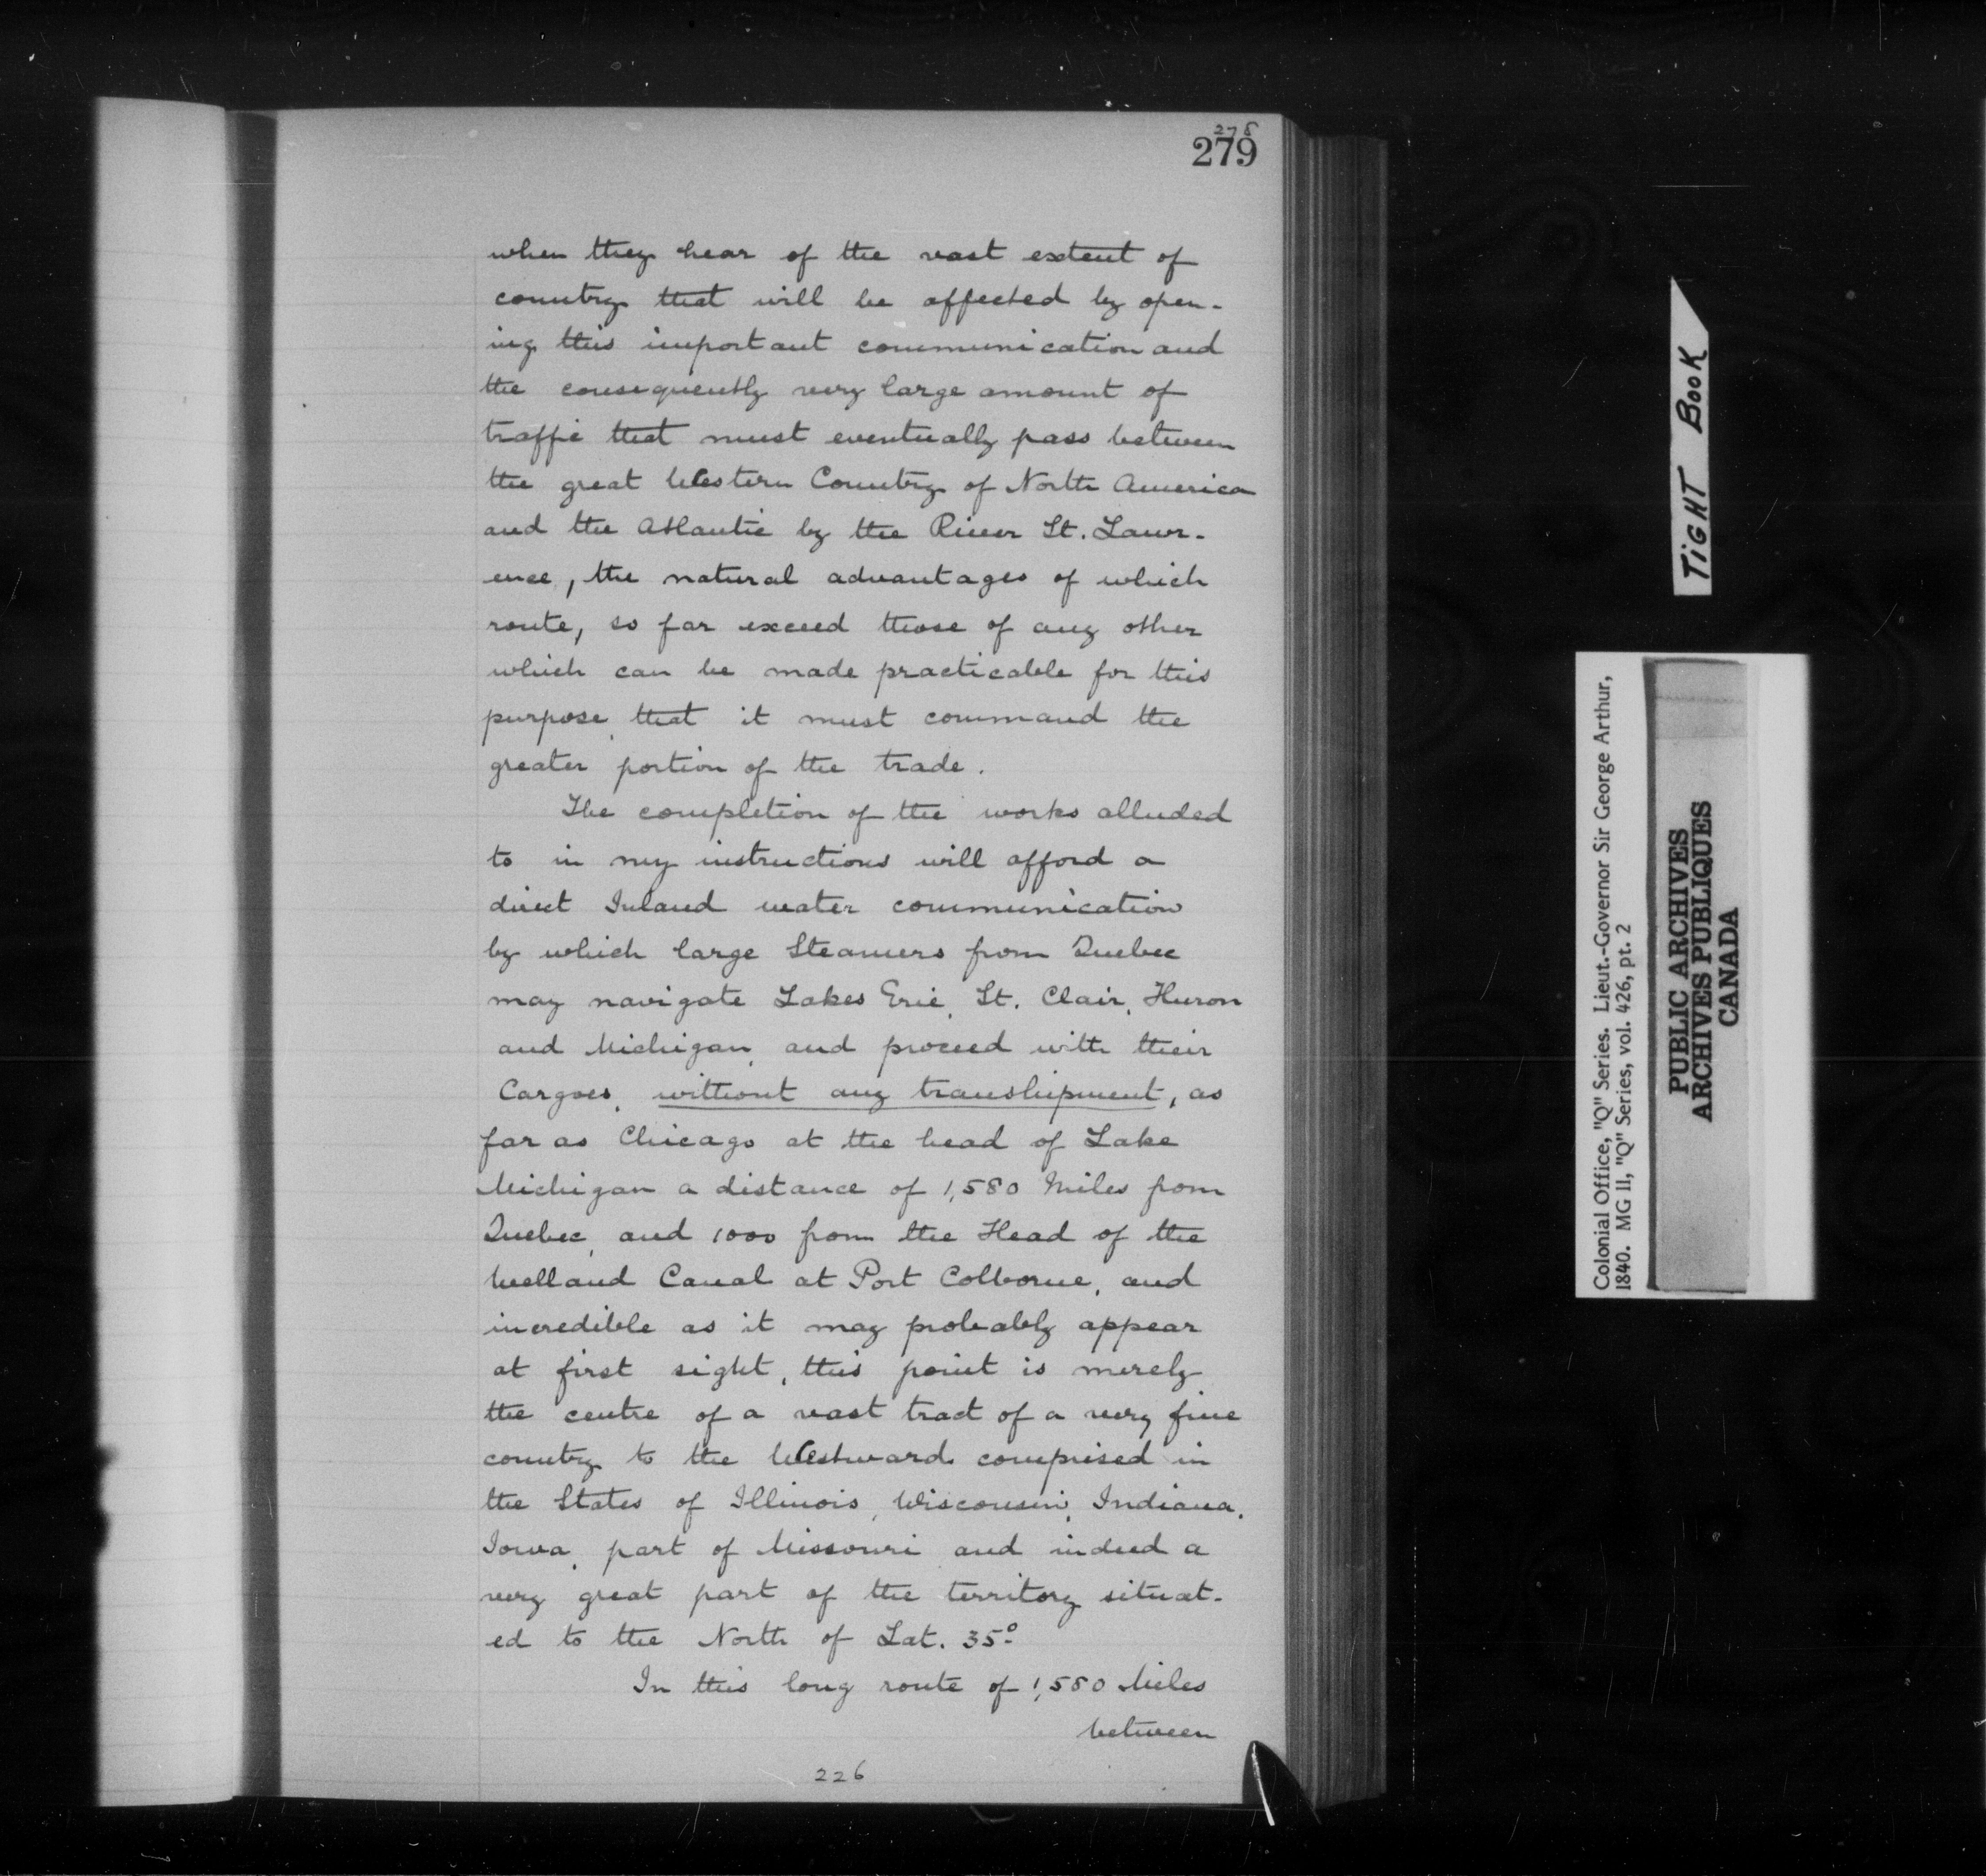 278
279
when they hear of the vast extent of
country that will be affected by open-
ing this important communication and
the consequently very large amount of
traffic that must eventually pass between
the great Western Country of North America
and the Atlantic by the River St. Lawr-
ence, the natural advantages of which
route, so far exceed those of any other
which can be made practicable for this
purpose, that it must command the
greater portion of the trade.
The completion of the works alluded
to in my instructions will afford a
direct Inland water communication
by which large Steamers from Quebec
may navigate Lakes Erie, St. Clair, Huron
and Michigan, and proceed with their
Cargoes, without any transhipment, as
far as Chicago at the head of Lake
Michigan a distance of 1,580 Miles from
Quebec, and 1000 from the Head of the
Welland Canal at Port Colborne, and
incredible as it may probably appear
at first sight, this point is merely
the centre of a vast tract of a very fine
country to the Westward comprised in
the States of Illinois, Wisconsin, Indiana,
Iowa, part of Missouri and indeed a
very great part of the territory situat-
ed to the North of Lat. 35°
In this long route of 1,580 Miles
between
226
TIGHT BOOK
Colonial Office, "Q" Series. Lieut.-Governor Sir George Arthur,
1840. MG II, "Q" Series, vol. 426, pt. 2
PUBLIC ARCHIVES
ARCHIVES PUBLIQUES
CANADA